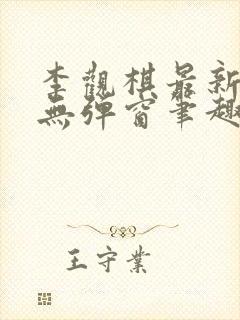 李觀棋最新
無彈窗筆趣
王守業